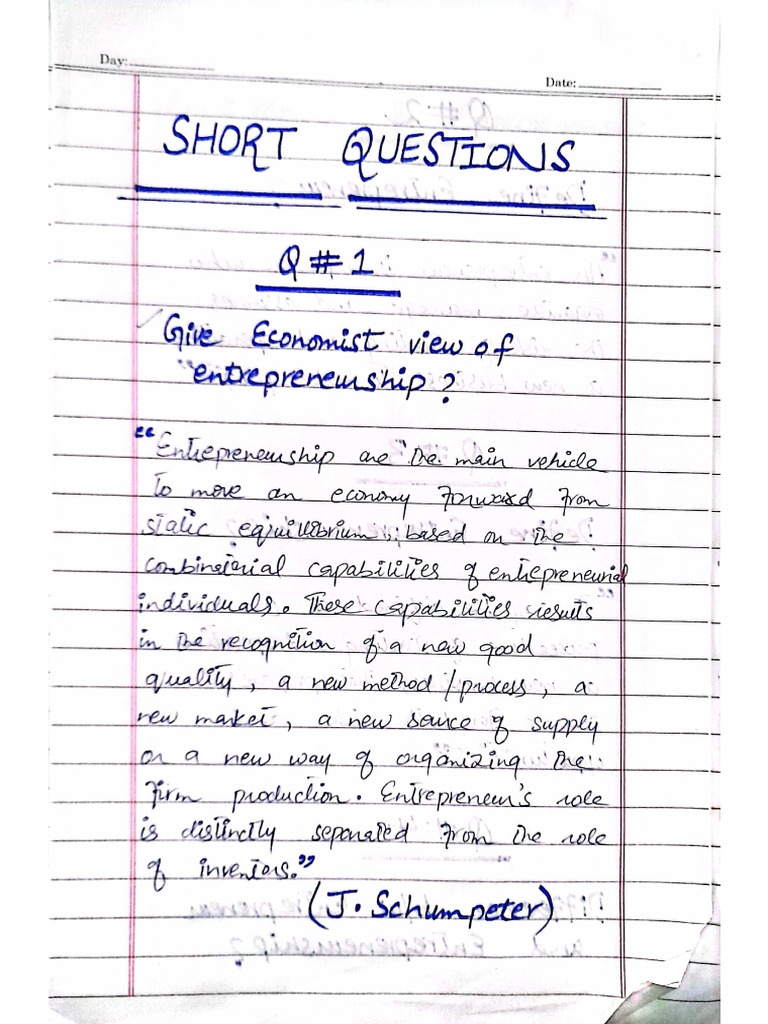 Day:
Date:
SHORT QUESTIONS
Q # 1
Give Economist view of
entrepreneurship?
"Entrepreneurship are the main vehicle
to move an economy forward from
static equillibrium, based on the
combinatorial capabilities of entrepreneurial
individuals. These capabilities results
in the recognition of a new good
quality, a new method/process, a
new market, a new source of supply
or a new way of organizing the
firm production. Entrepreneur's role
is distinctly separated from the role
of inventors."
(J. Schumpeter)